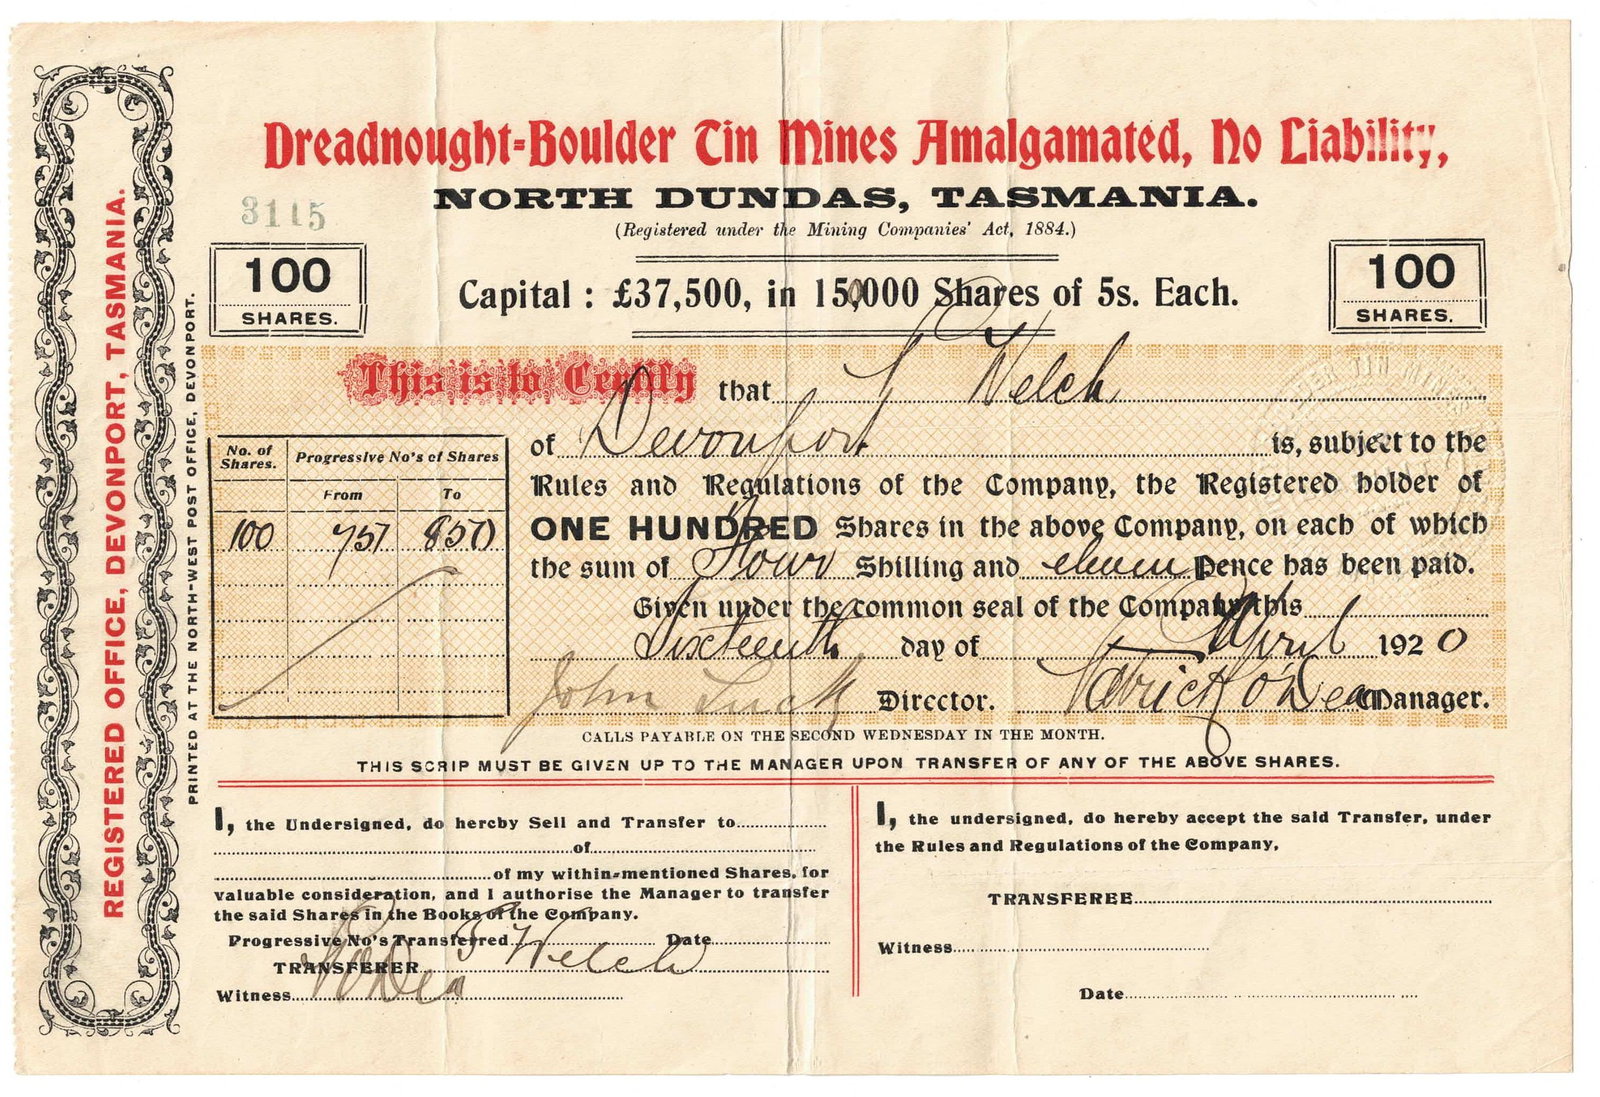 Dreadnought-Boulder Tin Mines Amalgamated, No Liability,
NORTH DUNDAS, TASMANIA.
(Registered under the Mining Companies' Act, 1884.)
3115
100
SHARES.
Capital : £37,500, in 150,000 Shares of 5s. Each.
100
SHARES.
REGISTERED OFFICE, DEVONPORT, TASMANIA.
PRINTED AT THE NORTH-WEST POST OFFICE, DEVONPORT.
This is to Certify that Welch
of Devonport is, subject to the
Rules and Regulations of the Company, the Registered holder of
ONE HUNDRED Shares in the above Company, on each of which
the sum of Four Shilling and eleven Pence has been paid.
Given under the common seal of the Company this
Sixteenth day of April 1920
John Luck Director. Patrick O'Dea Manager.
No. of Shares. Progressive No's of Shares
From To
100 751 850
CALLS PAYABLE ON THE SECOND WEDNESDAY IN THE MONTH.
THIS SCRIP MUST BE GIVEN UP TO THE MANAGER UPON TRANSFER OF ANY OF THE ABOVE SHARES.
I, the Undersigned, do hereby Sell and Transfer to
of
of my within-mentioned Shares, for
valuable consideration, and I authorise the Manager to transfer
the said Shares in the Books of the Company.
Progressive No's Transferred Date
TRANSFERER Welch
Witness P O'Dea
I, the undersigned, do hereby accept the said Transfer, under
the Rules and Regulations of the Company,
TRANSFEREE
Witness
Date